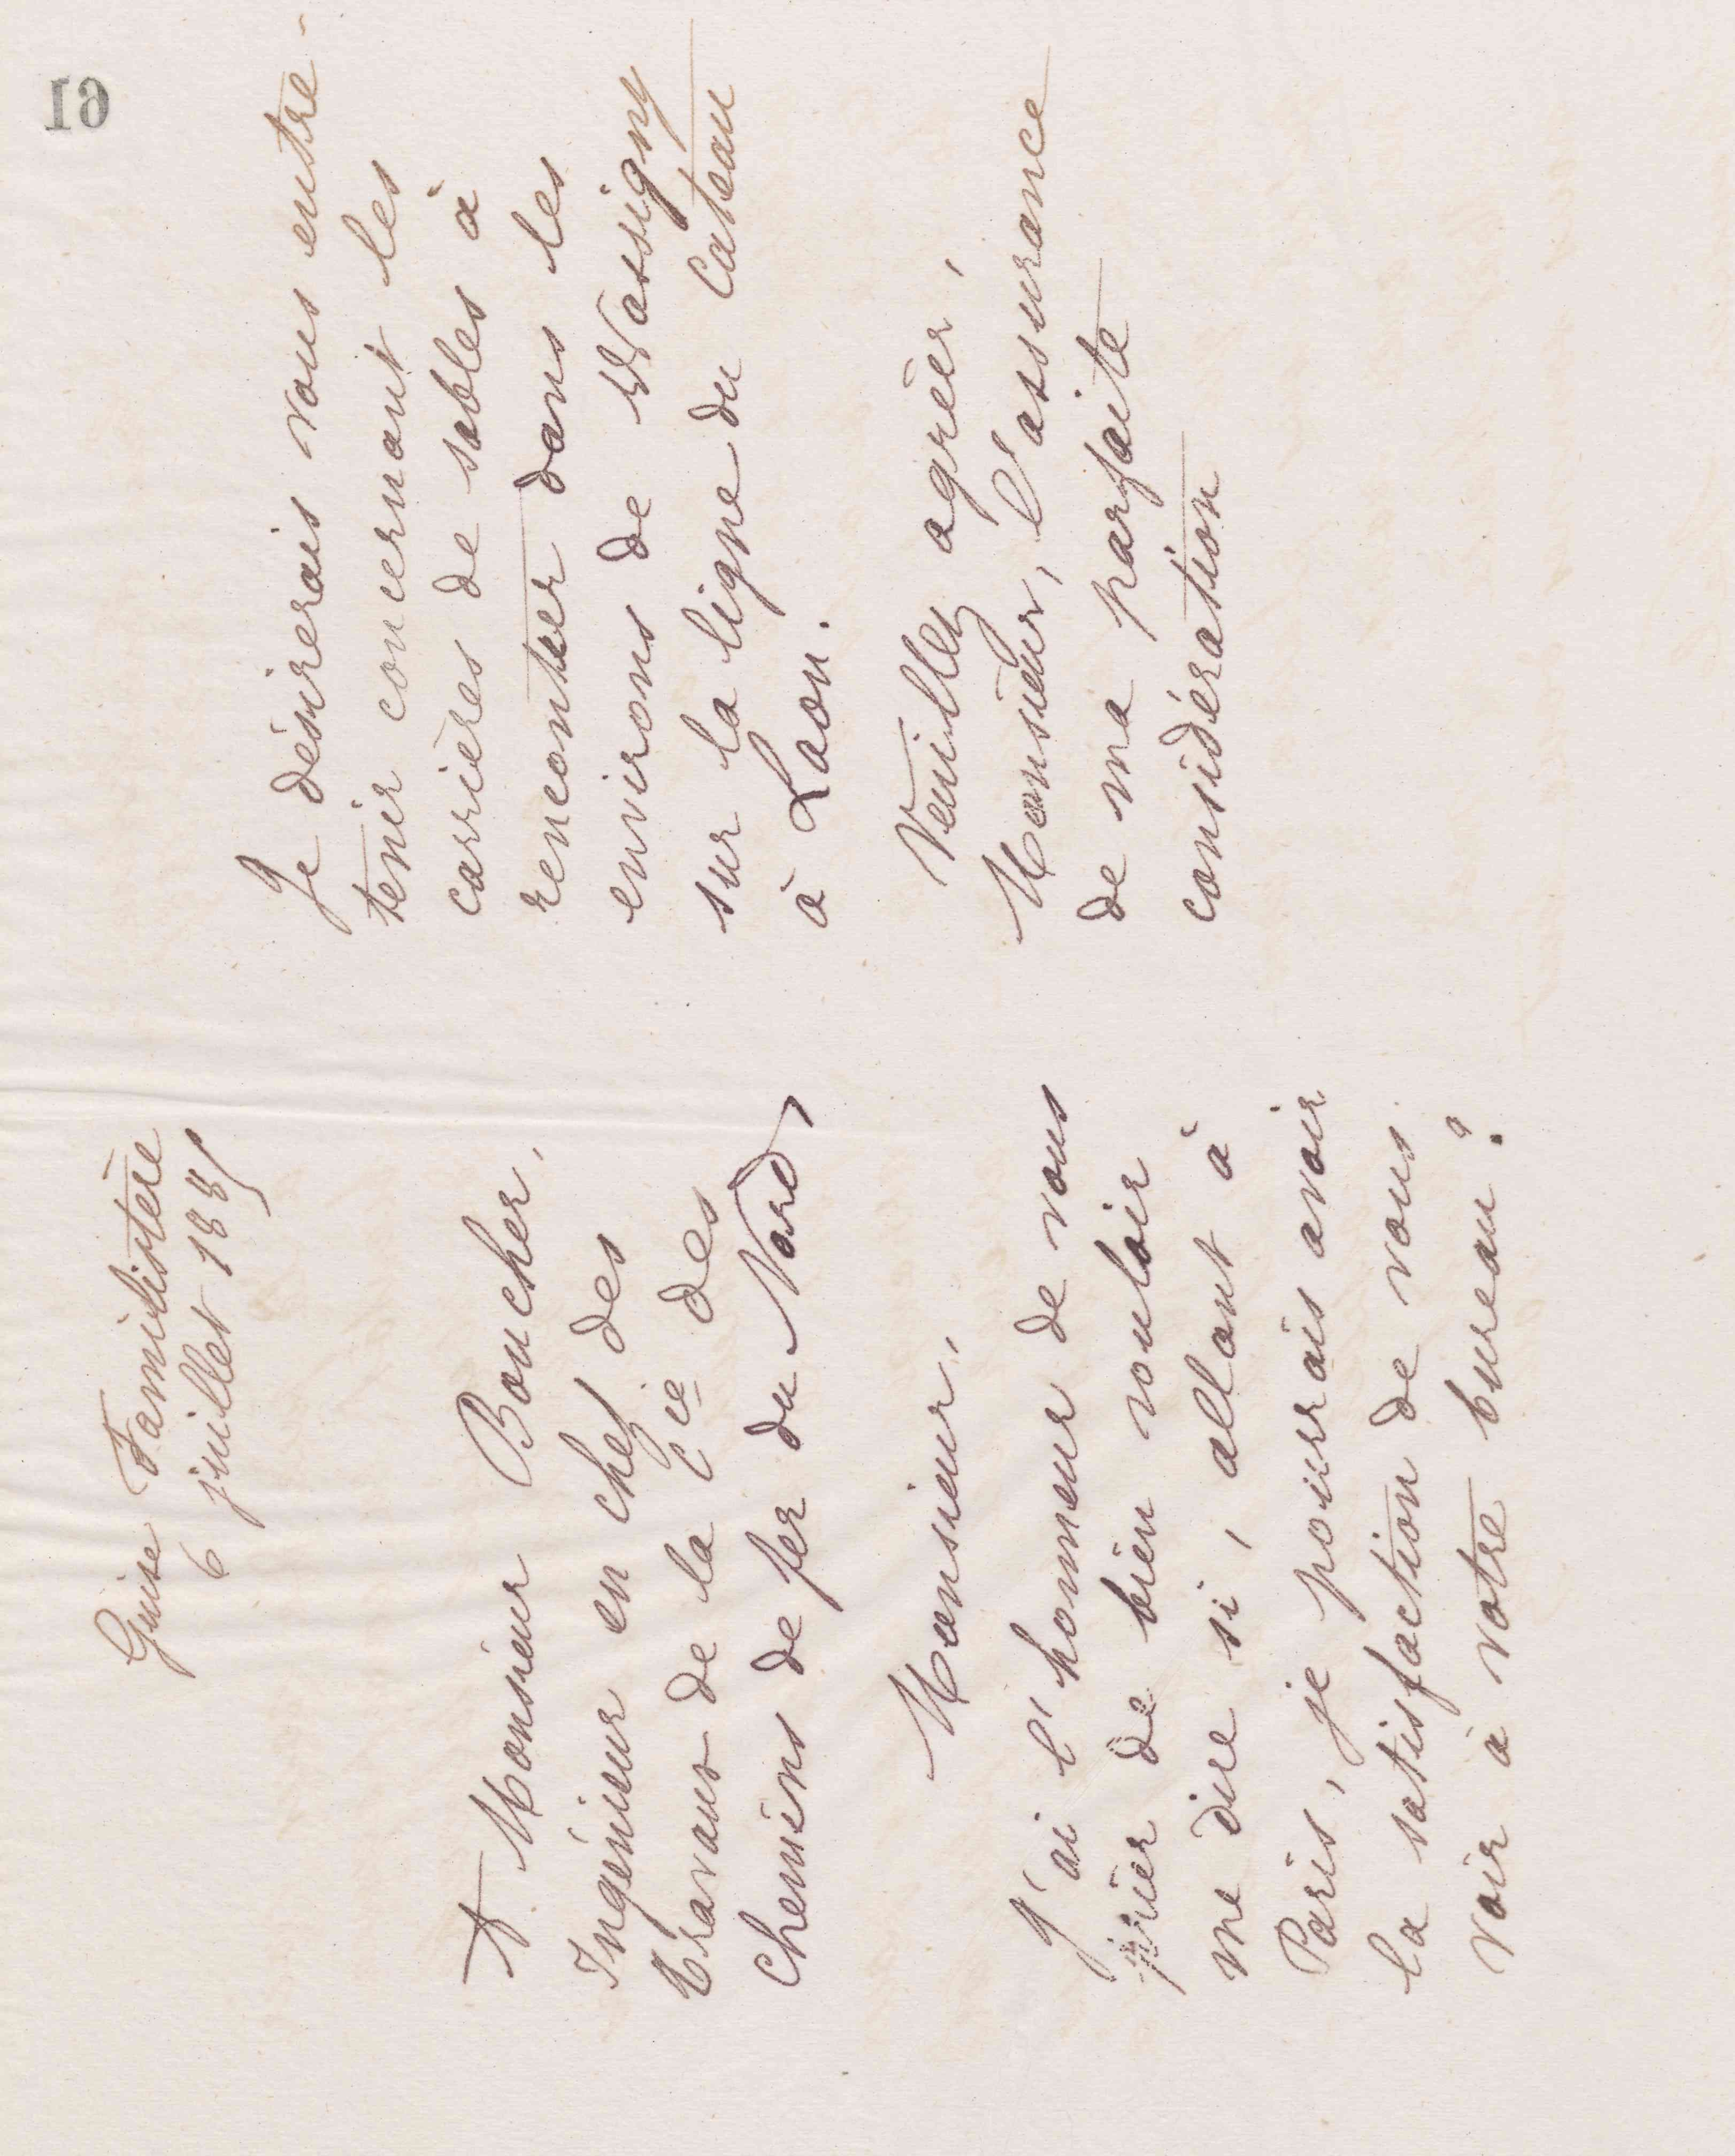 61
Guise Familistère
6 juillet 1885
A Monsieur Boucher,
Ingénieur en chef des
travaux de la Cie des
chemins de fer du Nord
Monsieur,
J'ai l'honneur de vous
prier de bien vouloir
me dire si, allant à
Paris, je pourrais avoir
la satisfaction de vous
voir à votre bureau ?
Je désirerais vous entre-
tenir concernant les
carrières de sables à
rencontrer dans les
environs de Wassigny
sur la ligne du Cateau
à Laon.
Veuillez agréer,
Monsieur, l'assurance
de ma parfaite
considération